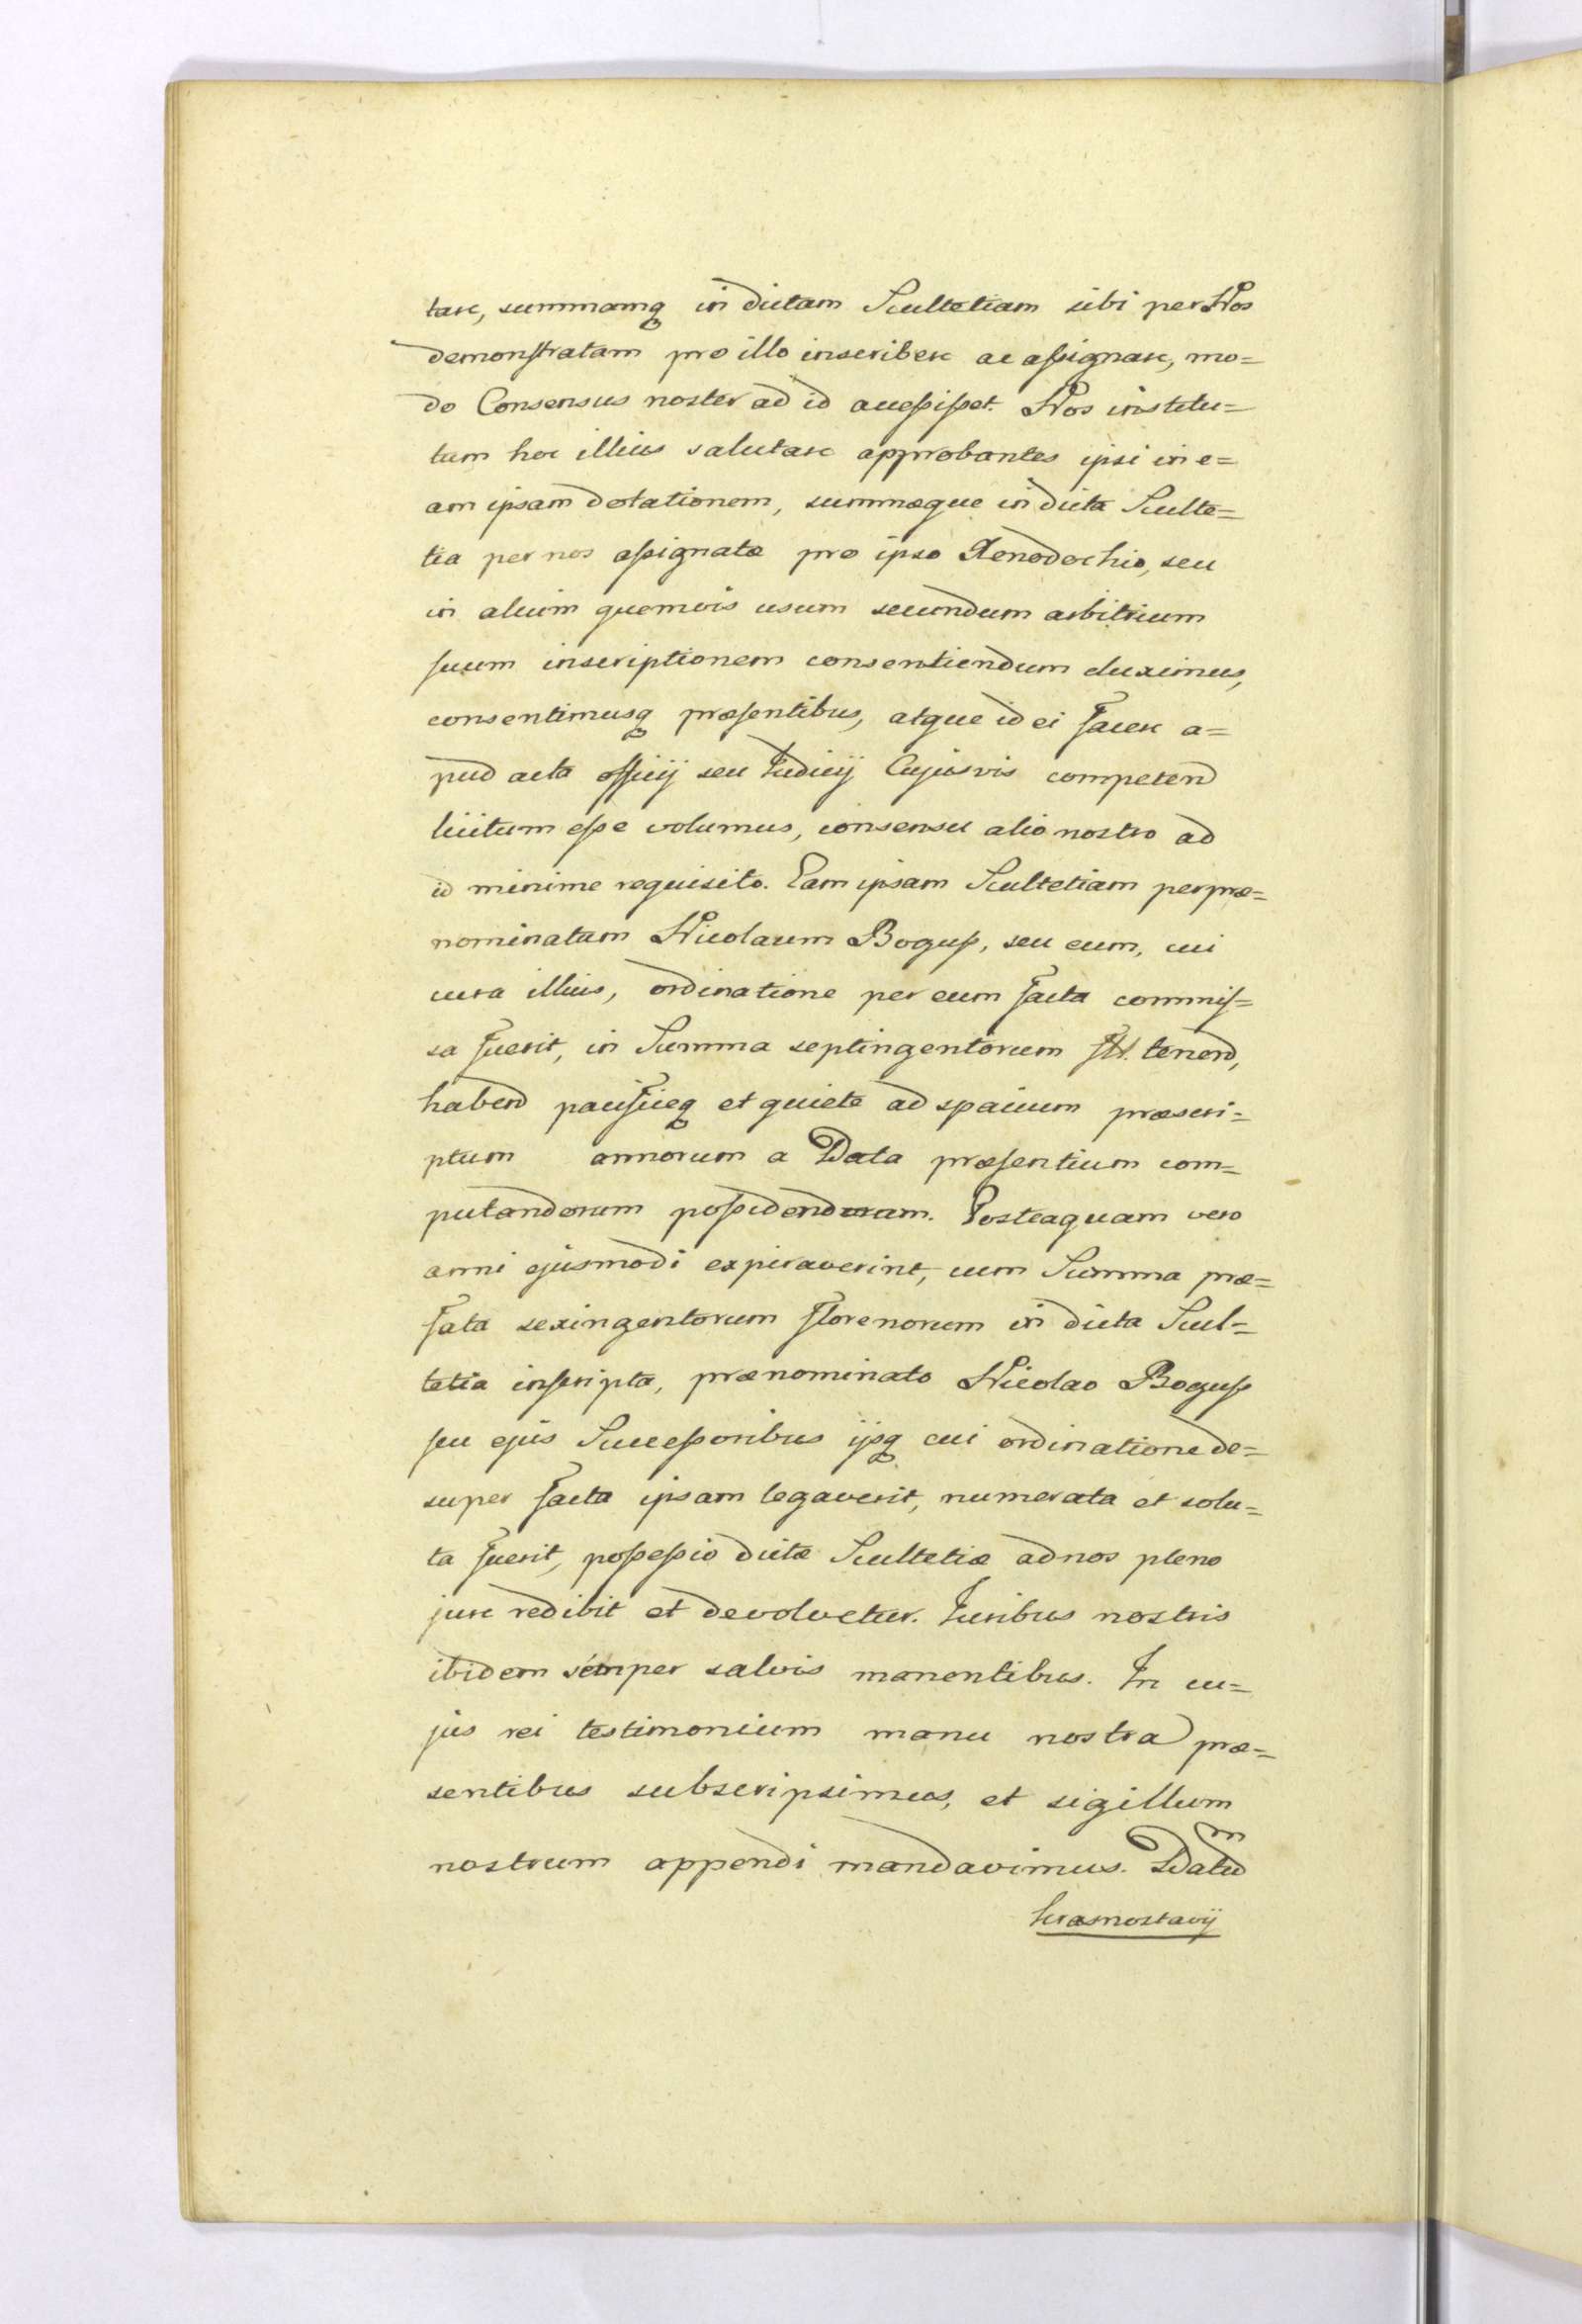 tare, summamq in dictam Scultetiam sibi per Nos
demonstratam pro illo inscribere ac assignare, mo=
do Consensus noster ad id accessisset. Nos institu=
tum hoc illius salutare approbantes ipsi in e=
am ipsam dotationem, summæque in dicta Sculte=
tia per nos assignatæ pro ipso Xenodochio, seu
in alium quemvis usum secundum arbitrium
suum inscriptionem consentiendum duximus,
consentimusq præsentibus, atque id ei facere a=
pud acta officij seu Judicij Cujusvis competend
licitum esse volumus, consensu alio nostro ad
id minime requisito. Eam ipsam Scultetiam per præ=
nominatam Nicolaum Boguss, seu eum, cui
cura illius, ordinatione per eum facta commis=
sa fuerit, in Summa septingentorum fll. tenend,
habend pacificeq et quiete ad spacium præscri=
ptum annorum a Data præsentium com=
putandorum possidendam. Posteaquam vero
anni ejusmodi expiraverint, cum Summa præ=
fata sexingentorum florenorum in dicta Scul=
tetia inscripta, prænominato Nicolao Boguss
seu ejus Successoribus ijsq cui ordinatione de=
super facta ipsam legaverit, numerata et solu=
ta fuerit, possessio dictæ Scultetiæ ad nos pleno
jure redibit et devolvetur. Juribus nostris
ibidem semper salvis manentibus. In cu=
jus rei testimonium manu nostra præ=
sentibus subscripsimus, et sigillum
nostrum appendi mandavimus. Datum
krasnostavij